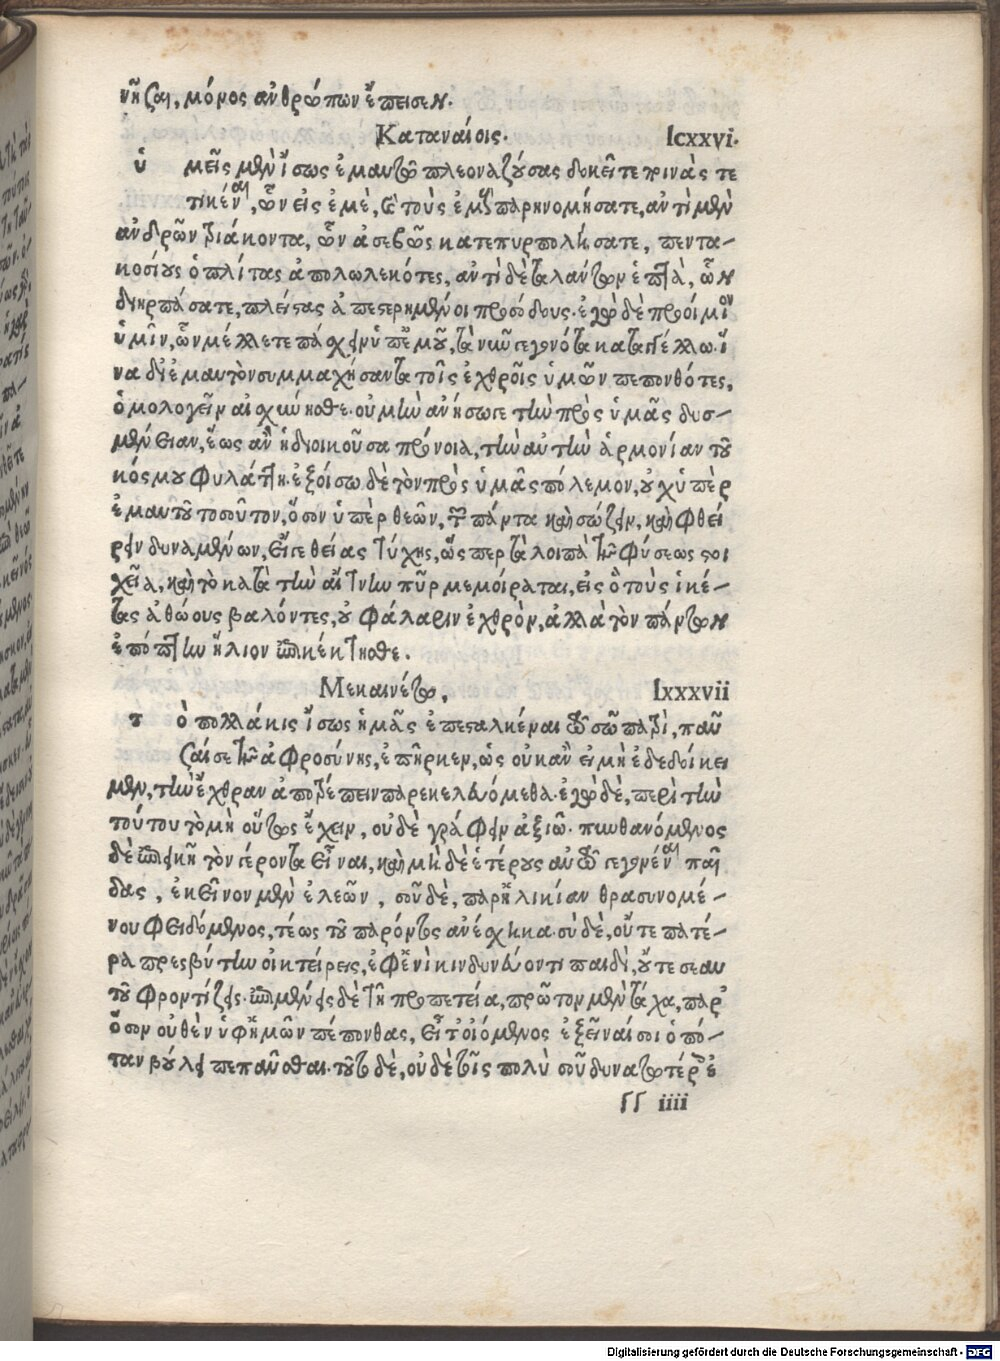 νῆσαι, μόνος ἀνθρώπων ἔπεισεν.
Καταναίοις. lcxxvi.
ὑ μεῖς μὲν ἴσως ἐμαυτῷ πλεοναζούσας δοκεῖτε ποινὰς τε
τικέναι, ὧν εἰς ἐμὲ, καὶ τοὺς ἐμοὺς παρηνομήσατε, ἀντὶ μὲν
ἀνδρῶν τριάκοντα, ὧν ἀσεβῶς κατεπυρπολήσατε, πεντα-
κοσίους ὁπλίτας ἀπολωλεκότες, ἀντὶ δὲ ταλάντων ἑπτὰ, ὧν
διηρπάσατε, πλείστας ἀπεστερημένοι προσόδους. ἐγὼ δὲ προίμιον
ὑμῖν, ὧν μέλλετε πάσχειν ὑπ' ἐμοῦ, τὰ νῦν γεγονότα καταγγέλλω. ἵ
να δι' ἐμαυτὸν συμμαχήσαντα τοῖς ἐχθροῖς ὑμῶν πεπονθότες,
ὁμολογεῖν αἰσχύνησθε. οὐ μὴν ἀνήσω γε τὴν πρὸς ὑμᾶς δυσ-
μένειαν, ἕως ἂν ἡ διοικοῦσα πρόνοια, τὴν αὐτὴν ἁρμονίαν τοῦ
κόσμου φυλάττῃ. ἐξοίσω δὲ τὸν πρὸς ὑμᾶς πόλεμον, οὐχ ὑπὲρ
ἐμαυτοῦ τοσοῦτον, ὅσον ὑπὲρ θεῶν, τῶν πάντα καὶ σώζειν, καὶ φθεί
ρειν δυναμένων, εἴγε θείας τύχης, ὥσπερ τὰ λοιπὰ τῆς φύσεως στοι
χεῖα, καὶ τὸ κατὰ τὴν αἴτνην πῦρ μεμοίραται, εἰς ὃ τοὺς ἱκέ-
τας ἀθώους βαλόντες, οὐ φάλαριν ἐχθρὸν, ἀλλὰ τὸν πάντων
ἐπόπτην ἥλιον ἐπικέκτησθε.
Μεκαινέτῳ, lxxxvii
τ ὸ πολλάκις ἴσως ἡμᾶς ἐπεσταλκέναι τῷ σῷ πατρὶ, παῦ
σαί σε τῆς ἀφροσύνης, ἐπῆρκεν, ὡς οὐκ ἂν εἰ μὴ ἐδεδοίκει
μεν, τὴν ἔχθραν ἀποτρέπειν παρεκελευόμεθα. ἐγὼ δὲ, περὶ τὴν
τούτου τὸ μὴ οὕτως ἔχειν, οὐδὲ γράφειν ἀξιῶ. πυνθανόμενος
δὲ ἐπιεικῆ τὸν γέροντα εἶναι, καὶ μὴ δὲ ἑτέρους αὐτῷ γεγονέναι παῖ
δας, ἐκεῖνον μὲν ἐλεῶν, σοῦ δὲ, παρ' ἡλικίαν θρασυνομέ-
νου φειδόμενος, τέως τοῦ παρόντος ἀνέσχηκα. σὺ δὲ, οὔτε πατέ-
ρα πρεσβύτην οἰκτείρεις, ἐφ' ἑνὶ κινδυνεύοντι παιδὶ, οὔτε σεαυ
τοῦ φροντίζεις. ἐπιμένεις δὲ τῇ προπετείᾳ, πρῶτον μὲν τάχα, παρ'
ὅσον οὐθὲν ὑφ' ἡμῶν πέπονθας, εἶτ' οἰόμενος ἐξεῖναί σοι ὁπό-
ταν βούλῃ πεπαῦσθαι. τοῦτο δὲ, οὐδὲ τοῖς πολὺ σοῦ δυνατωτέροις ἐ
ſſ iiii
Digitalisierung gefördert durch die Deutsche Forschungsgemeinschaft - DFG